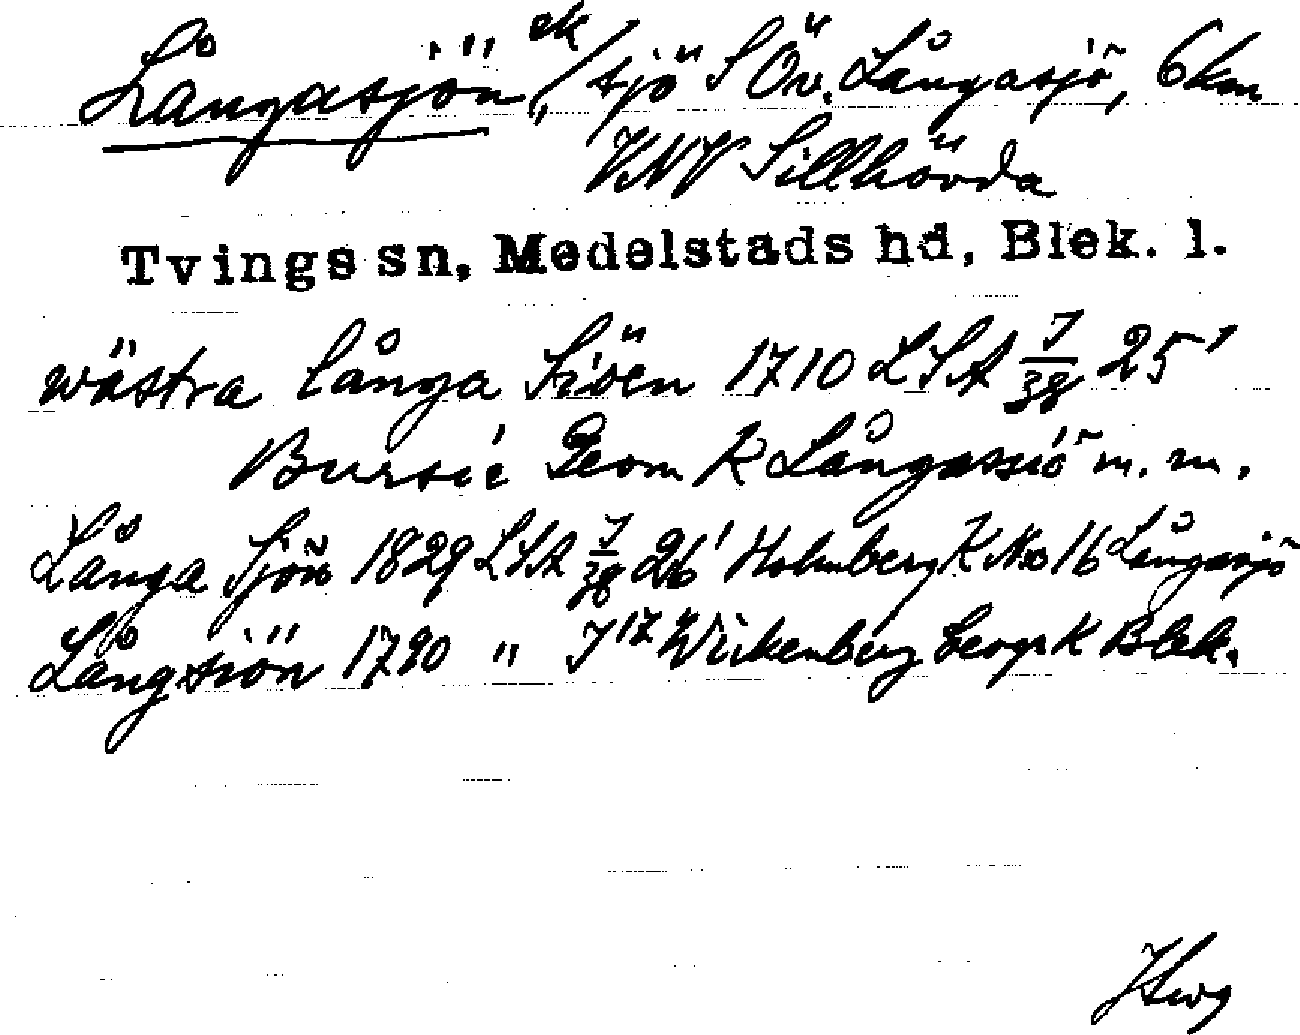 Långasjön, ek / sjö S Öv. Långasjö, 6 km
VNV Sillhövda
Tvings sn, Medelstads hd, Blek. l.
wästra långa Siöen 1710 LSA J/38 25'
Bursie Geom K Långassiö m. m.
Långa Sjön 1829 LSA J/38 26' Holmberg K No 16 Långasjö
Långsiön 1790 " J 17 Wickenberg Geogr K Blek.